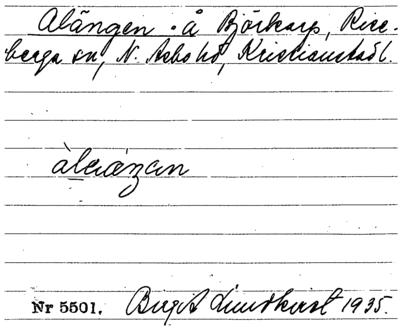 Alängen . å Björkarp, Rise-
berga sn, N. Åsbo hd, Kristianstad l.
àlæ̀ŋən
Nr 5501. Birgit Lundkvist 1935.